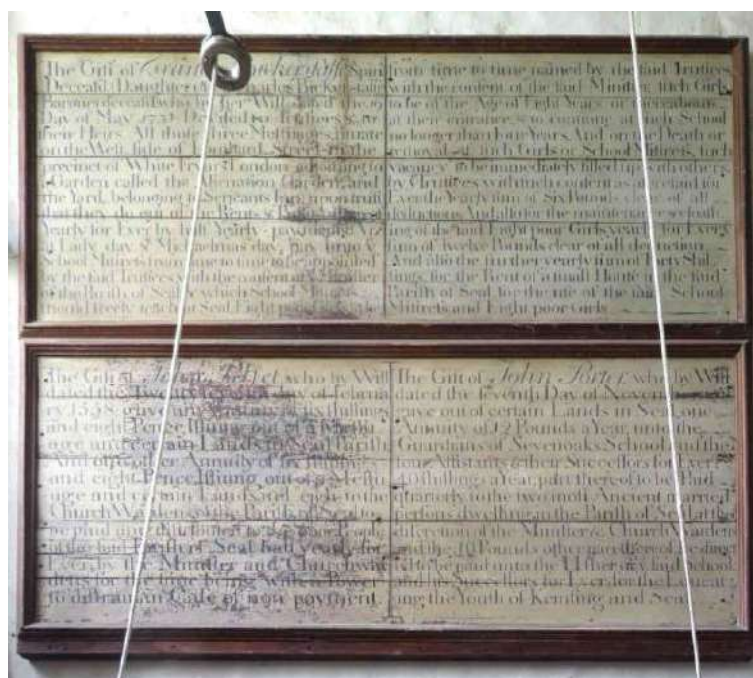 The Gift of
Deceased Daughter of Charles
Baronet deceased who by her Will dated the
Day of May
their Heirs All those three Messuages situate
on the West side of Street in the
precinct of White Fryers London adjoining to
a Garden called the Garden and
the Yard belonging to Servants Inn upon trust
they do out of the Rents &
Yearly for Ever by half Yearly payments
Lady day & Michaelmas day pay to a
School Mistress from time to time to be appointed
by the said Trustees with the consent of the Minister
of the Parish of Seal which School Mistress
should freely teach in Seal Eight poor
from time to time named by the said Trustees
with the consent of the said Minister such Girls
to be of the Age of Eight Years or thereabouts
at their entrance & to continue at such School
no longer than four Years. And on the Death or
removal of such Girls or School Mistress, such
vacancy to be immediately filled up with others
by Trustees with such consent as aforesaid for
Ever the Yearly sum of Six Pounds of all
deduction And also for the
ing of the said Eight poor Girls yearly for Every
sum of twelve Pounds clear of all deduction
And also the further yearly sum of forty Shil
lings, for the Rent of a small House in the said
Parish of Seal for the use of the said School
Mistress and Eight poor Girls
The Gift of who by Will
dated the Twenty day of Februa
ry 1558 gave an Annuity of six shillings
and eight Pence Issuing out of a
uage and certain Lands in Seal Parish
And one other Annuity of six shillings
and eight Pence Issuing out of a Messu
uage and certain Land and to the
Church Wardens of the Parish of Seal to
be paid and distributed to the poor People
of the said Parish of Seal half yearly for
Ever by the Minister and Churchwar
dens for the time being With a Power
to distrain in Case of non payment.
The Gift of John Porter who by Will
dated the seventh Day of November
gave out of certain Lands in Seal one
Annuity of 12 Pounds a Year, unto the
Guardians of Sevenoaks School and the
four Assistants & their Successors for Ever
40 shillings a Year, part thereof to be Paid
Quarterly to the two most Ancient married
Persons dwelling in the Parish of Seal at the
discretion of the Minister & Church Warden
and the 10 Pounds other part thereof he direct
ed to be paid unto the Usher of said School
and his Successors for Ever for the Educat
ing the Youth of Kemsing and Seal